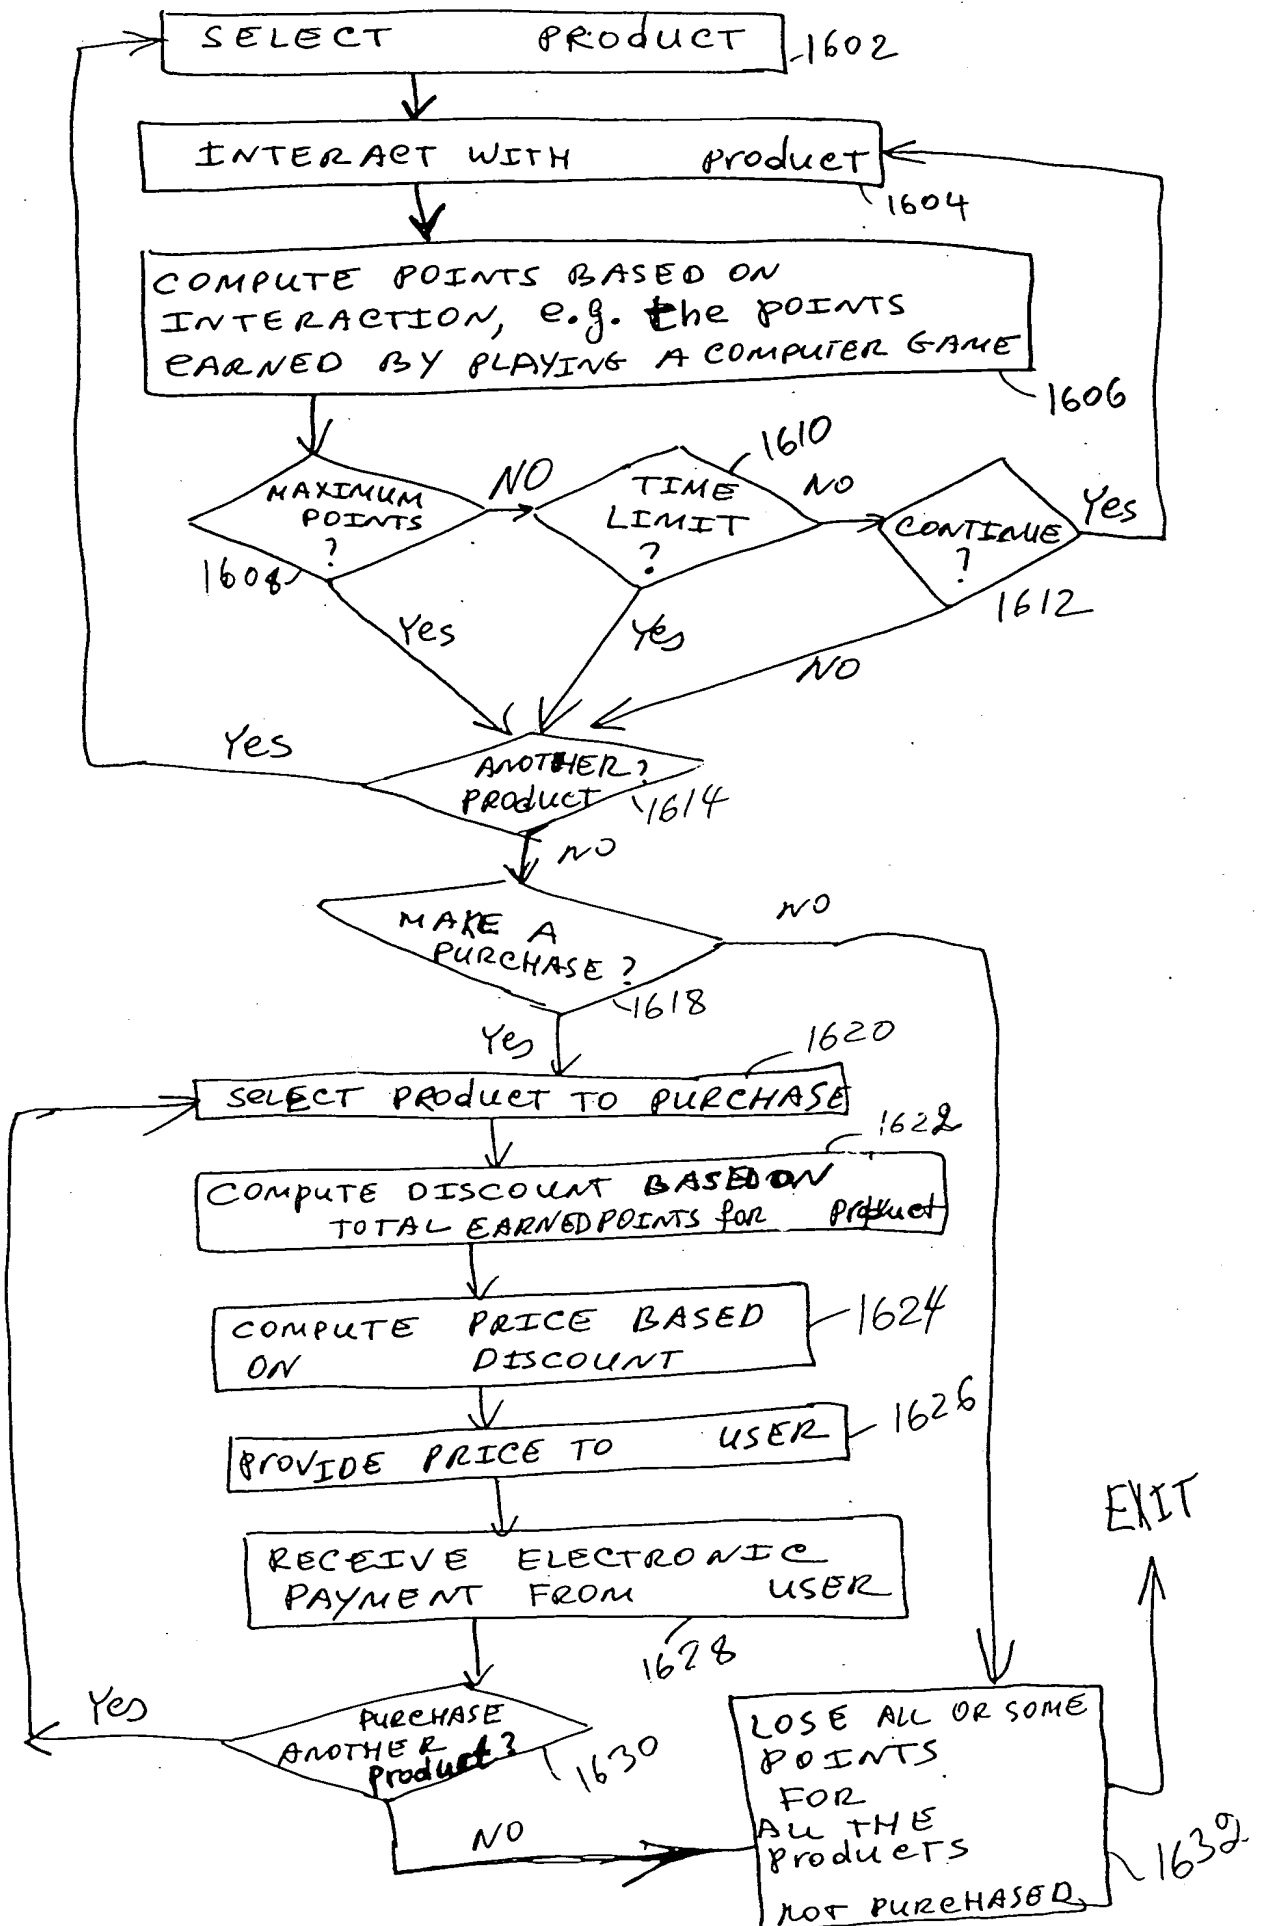 SELECT PRODUCT
1602
INTERACT WITH PRODUCT
1604
COMPUTE POINTS BASED ON
INTERACTION, e.g. the POINTS
EARNED BY PLAYING A COMPUTER GAME
1606
MAXIMUM
POINTS
?
1608
NO
1610
TIME
LIMIT
?
NO
CONTINUE
?
Yes
1612
Yes
Yes
NO
Yes
ANOTHER?
PRODUCT
1614
NO
MAKE A
PURCHASE?
NO
1618
Yes
1620
SELECT PRODUCT TO PURCHASE
1622
COMPUTE DISCOUNT BASED ON
TOTAL EARNED POINTS for Product
COMPUTE PRICE BASED
ON DISCOUNT
1624
1626
PROVIDE PRICE TO USER
RECEIVE ELECTRONIC
PAYMENT FROM USER
1628
EXIT
Yes
PURCHASE
ANOTHER
Product?
1630
NO
LOSE ALL OR SOME
POINTS
FOR
ALL THE
PRODUCTS
NOT PURCHASED
1632